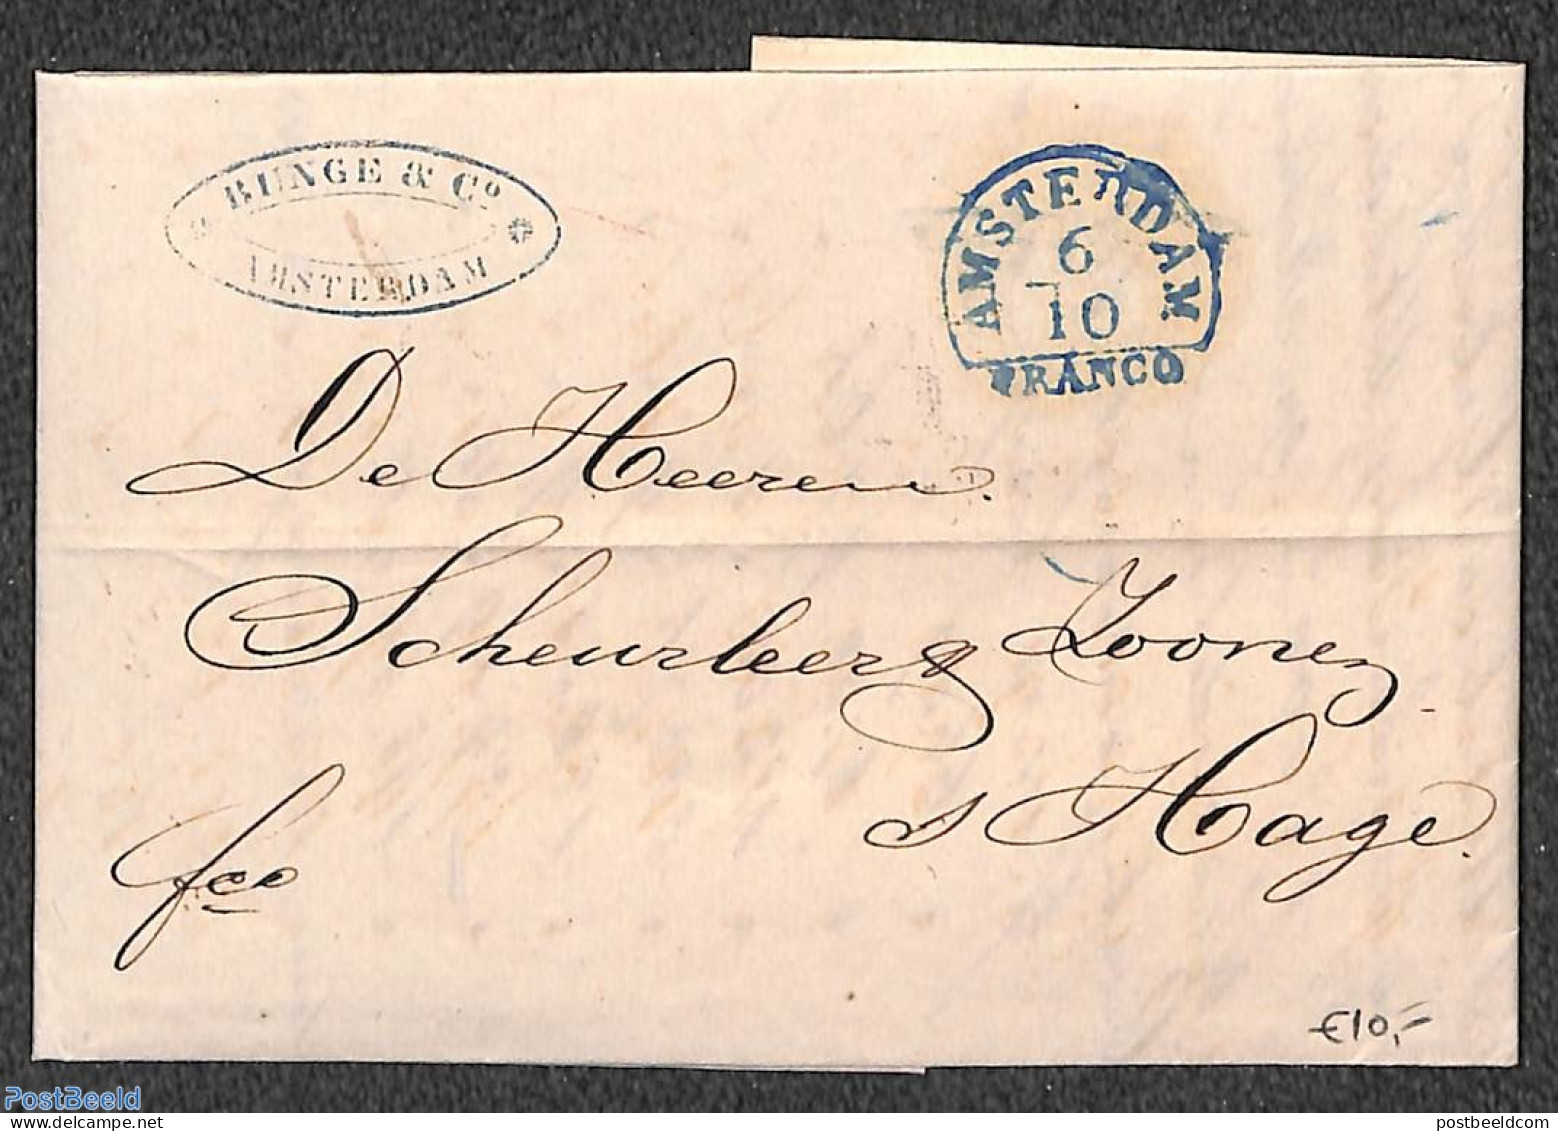 BUNGE & Cº
AMSTERDAM
AMSTERDAM
6
10
FRANCO
De Heeren.
Scheurleer & Zoonen
s Hage.
fco
€10,-
PostBeeld
postbeeldcom